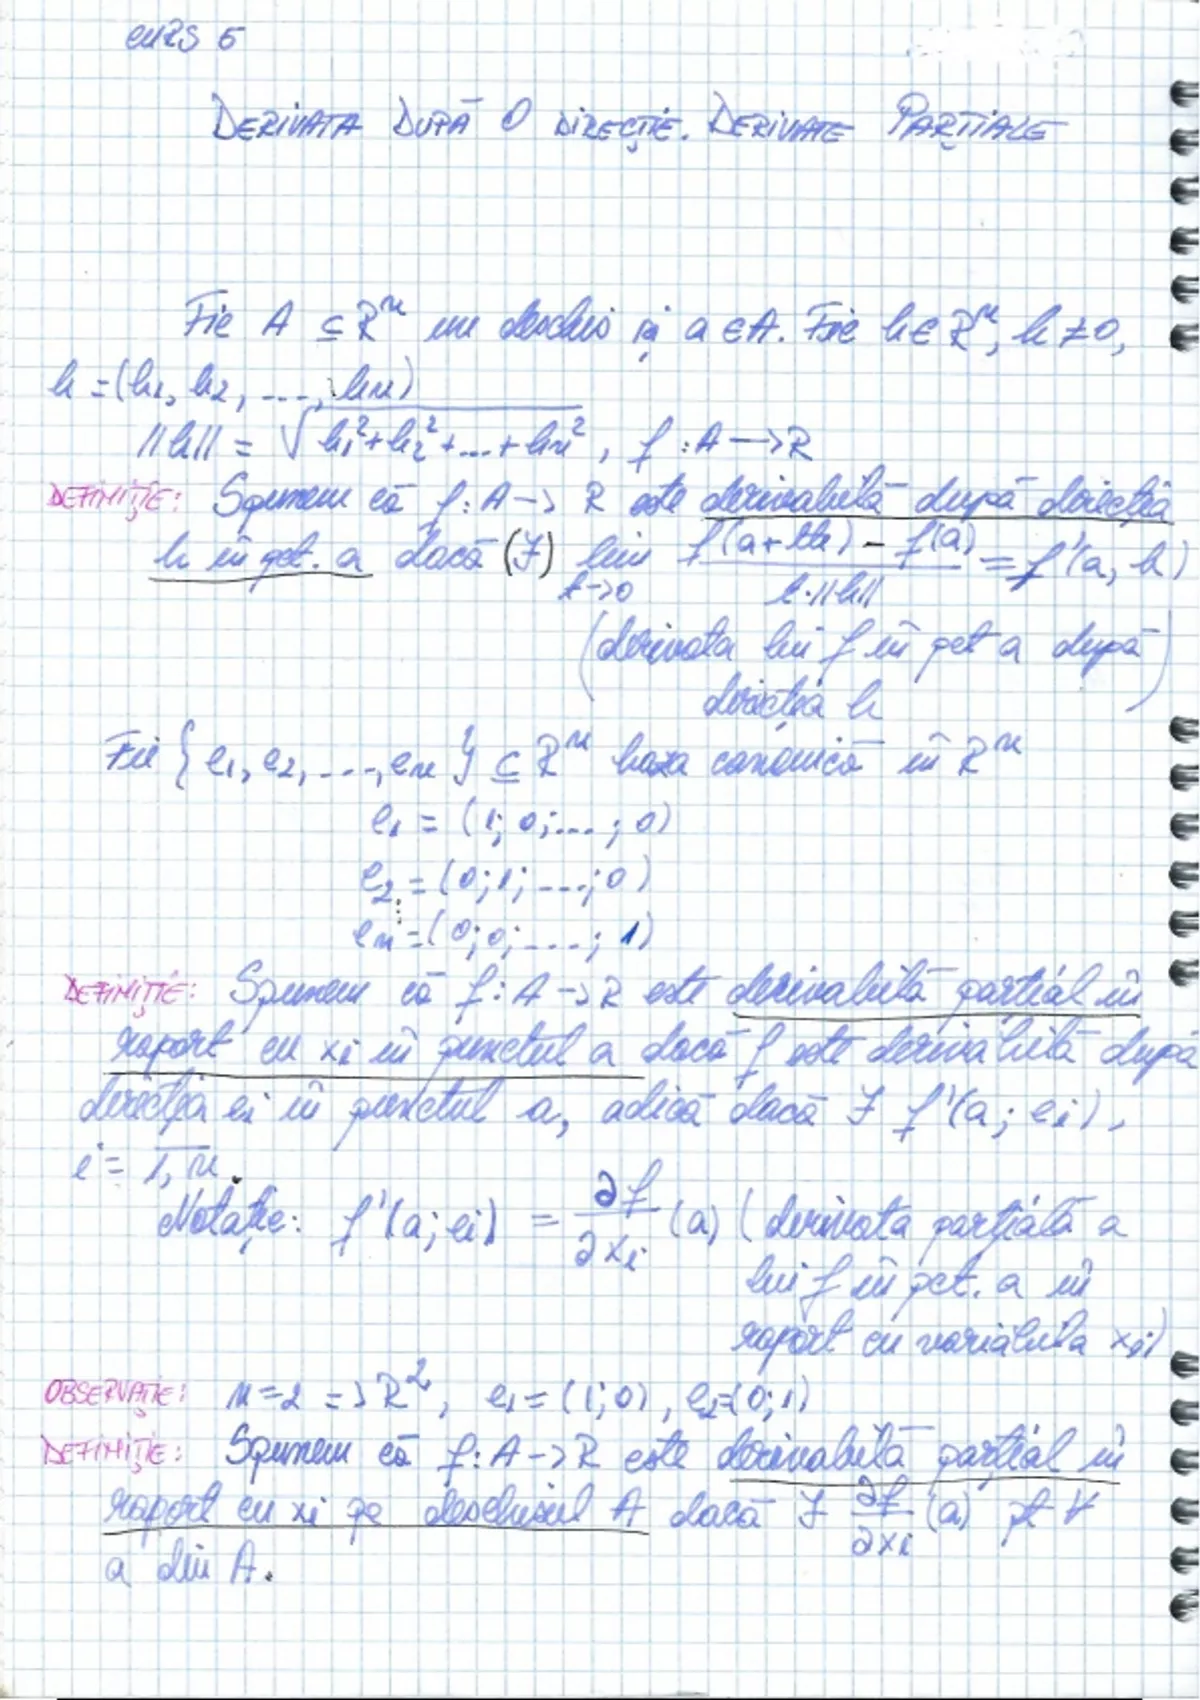 CURS 5
DERIVATA DUPĂ O DIRECȚIE. DERIVATE PARȚIALE
Fie A ⊆ R^n un deschis și a ∈ A. Fie h ∈ R^n, h ≠ 0,
h = (h1, h2, ..., hn)
||h|| = √(h1² + h2² + ... + hn²), f : A → R
DEFINIȚIE: Spunem că f : A → R este derivabilă după direcția
h în pct. a dacă (∃) lim t→0 (f(a + th) - f(a)) / (t·||h||) = f'(a, h)
(derivata lui f în pct a după
direcția h)
Fie {e1, e2, ..., en} ⊆ R^n baza canonică în R^n
e1 = (1; 0; ... ; 0)
e2 = (0; 1; ...; 0)
⋮
en = (0; 0; ....; 1)
DEFINIȚIE: Spunem că f : A → R este derivabilă parțial în
raport cu xi în punctul a dacă f este derivabilă după
direcția ei în punctul a, adică dacă ∃ f'(a; ei),
i = 1,n.
Notație: f'(a; ei) = ∂f/∂xi (a) (derivata parțială a
lui f în pct. a în
raport cu variabila xi)
OBSERVAȚIE: n=2 => R², e1 = (1;0), e2=(0;1)
DEFINIȚIE: Spunem că f : A → R este derivabilă parțial în
raport cu xi pe deschisul A dacă ∃ ∂f/∂xi (a) pt ∀
a din A.